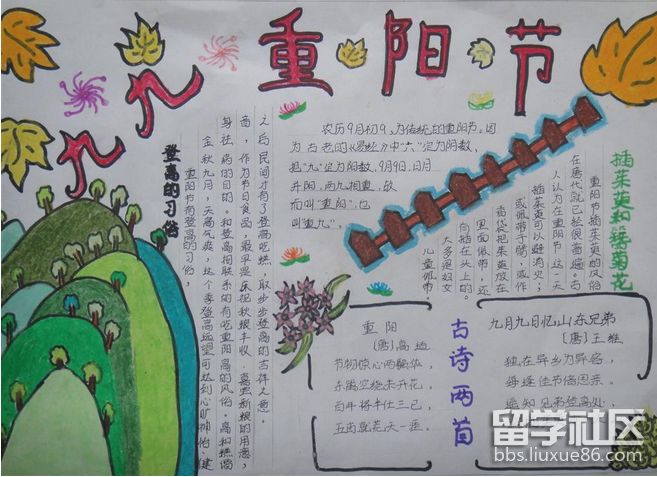 九九重阳节
农历9月初9,为传统的重阳节。因
为古老的《易经》中“六”定为阴数,
把“九”定为阳数,9月9日,日月
并阳,两九相重,故
而叫“重阳”,也
叫“重九”。
登高的习俗
重阳节有登高的习俗,
金秋九月,天高气爽,这个季登高远望可达到心旷神怡、健
身祛病的目的。和登高相联系的有吃重阳高的风俗。高和糕谐
音,作为节日食品,最早是庆祝秋粮丰收、喜尝新粮的用意,
之后民间才有了登高吃糕,取步步登高的吉祥之意。
插茱萸和簪菊花
重阳节插茱萸的风俗
在唐代就已经很普遍。古
人认为在重阳节这一天
插茱萸可以避难消灾;
或佩带于臂,或作
香袋把茱萸放在
里面佩带,还
有插在头上的。
大多是妇女
儿童佩带。
重阳
(唐)高适
节物惊心两鬓华,
东篱空绕未开花,
百年将半仕三已,
五亩就荒天一涯。
古诗两首
九月九日忆山东兄弟
(唐)王维
独在异乡为异客,
每逢佳节倍思亲。
遥知兄弟登高处,
留学社区
bbs.liuxue86.com